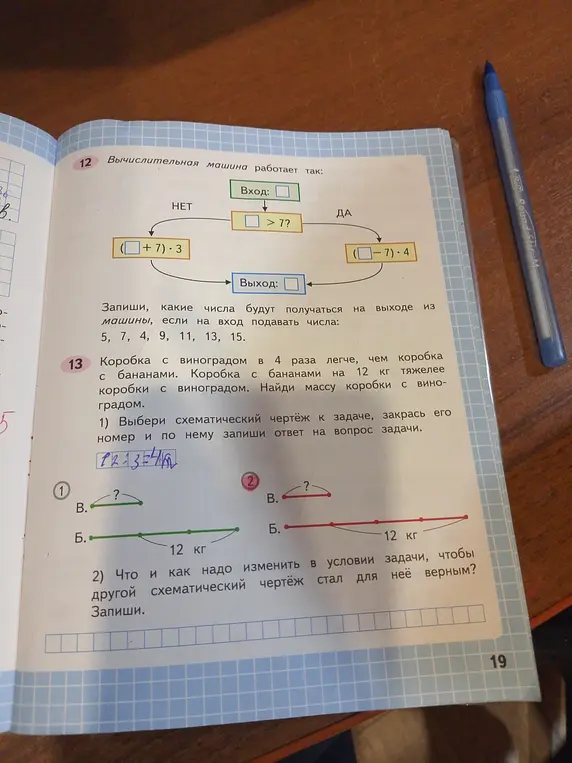 12 Вычислительная машина работает так:
Вход:
НЕТ
ДА
> 7?
( + 7) · 3
( − 7) · 4
Выход:
Запиши, какие числа будут получаться на выходе из
машины, если на вход подавать числа:
5, 7, 4, 9, 11, 13, 15.
13 Коробка с виноградом в 4 раза легче, чем коробка
с бананами. Коробка с бананами на 12 кг тяжелее
коробки с виноградом. Найди массу коробки с вино-
градом.
1) Выбери схематический чертёж к задаче, закрась его
номер и по нему запиши ответ на вопрос задачи.
12:3=4кг
1
?
В.
Б.
12 кг
2
?
В.
Б.
12 кг
2) Что и как надо изменить в условии задачи, чтобы
другой схематический чертёж стал для неё верным?
Запиши.
19